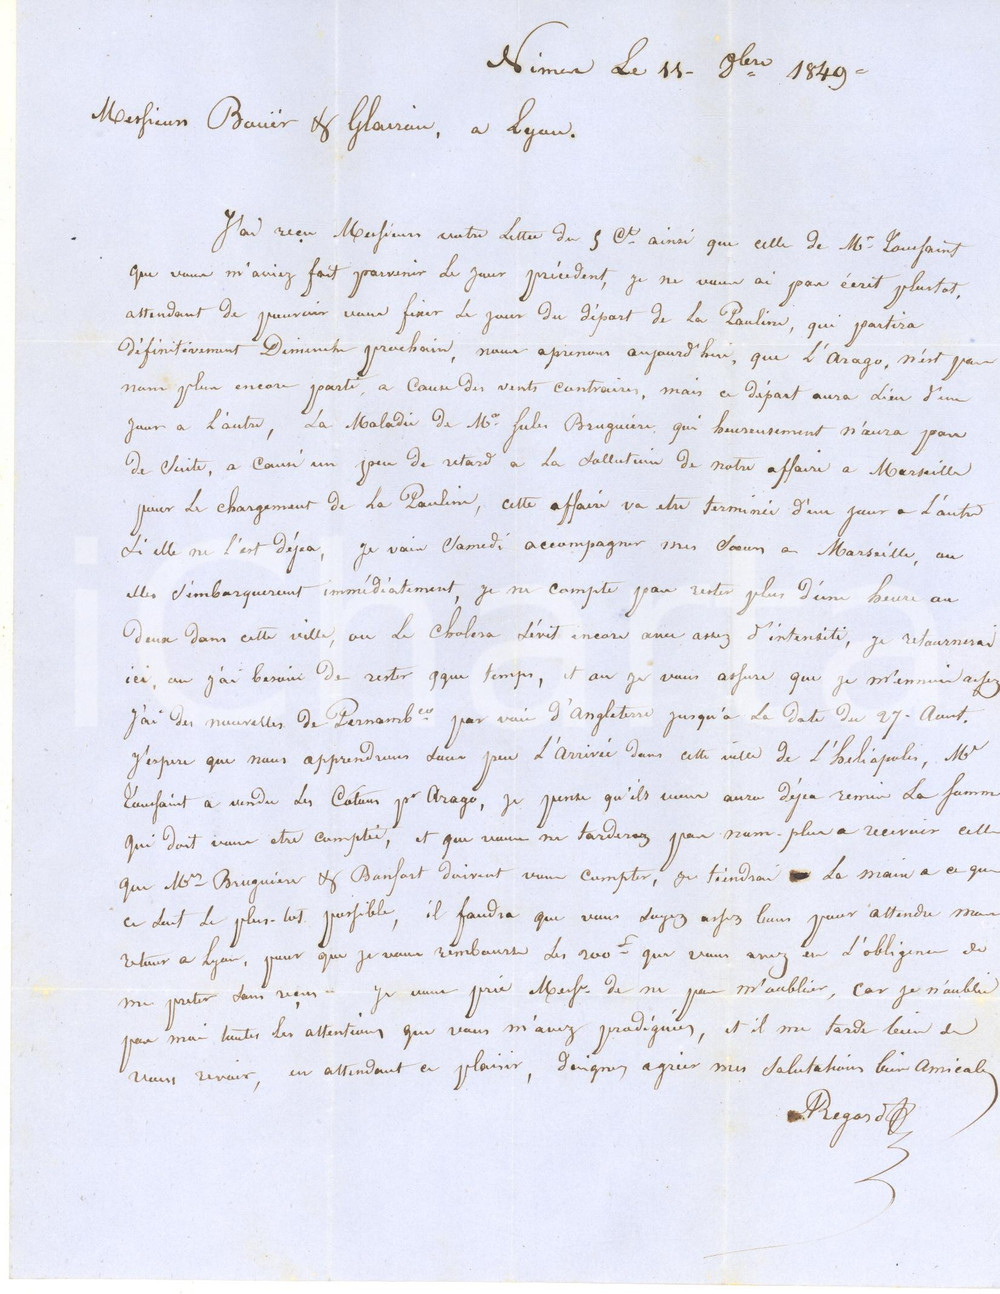 Nimes Le 11 - 8bre 1849 =
Messieurs Bouër & Glairon, a Lyon.
J'ai reçu Messieurs votre Lettre du 5 Ct ainsi que celle de Mr Toussaint
que vous m'aviez fait parvenir Le jour précédent, je ne vous ai pas écrit plustot,
attendant de pouvoir vous fixer Le jour du départ de La Pauline, qui partira
définitivement Dimanche prochain, nous aprenons aujourd'hui, que L'Arago, n'est pas
nom plus encore parti, a cause des vents contraires, mais ce départ aura Lieu d'un
jour a L'autre, La Maladie de Mr Jules Bruguière, qui heureusement n'aura pas
de Suite, a causé un peu de retard a La Sollution de notre affaire a Marseille
pour Le chargement de La Pauline, cette affaire va etre terminée d'un jour a L'autre
Si elle ne L'est déjea, je vais Samedi accompagner mes Sœurs a Marseille, ou
elles S'embarqueront immédiatement, je ne compte pas rester plus d'une heure ou
deux dans cette ville, ou Le Cholera Sévit encore avec assez d'intensité, je retournerai
ici, ou j'ai besoin de rester qque temps, et ou je vous assure que je m'ennuie assez
J'ai des nouvelles de Pernambco par voie d'Angleterre jusqu'a La date du 27 - Aout.
J'espere que nous apprendrons Sous peu L'Arrivée dans cette ville de L'héliopolis, Mr
Toussaint a vendu Les Cotons pr Arago, je pense qu'ils vous aura déjea remis La Somme
qui doit vous etre comptée, et que vous ne tarderez pas nom-plus a recevoir celle
que Mrs Bruguière & Bonfort doivent vous compter, je tiendrai La main a ce que
ce Soit Le plus-tot possible, il faudra que vous Soyez assez bons pour attendre mon
retour a Lyon, pour que je vous rembourse Les 200 f que vous avez eu L'obligence de
me preter Sans reçus = Je vous prie Messrs de ne pas m'oublier, car je n'oublie
pas moi toutes Les attentions que vous m'avez prodiguées, et il me tarde bien de
vous revoir, en attendant ce plaisir, daignez agréer mes Salutations bien Amicales
Regard
iCharta